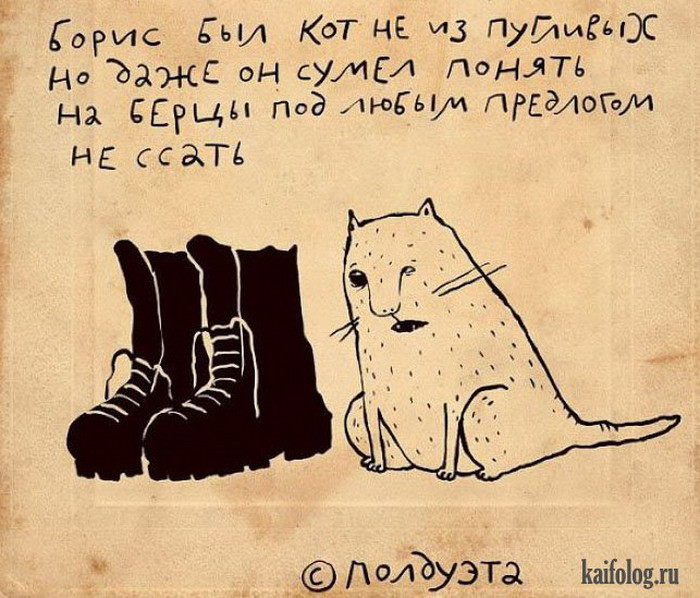 Борис был кот не из пугливых
но даже он сумел понять
на берцы под любым предлогом
не ссать
© полдуэта
kaifolog.ru